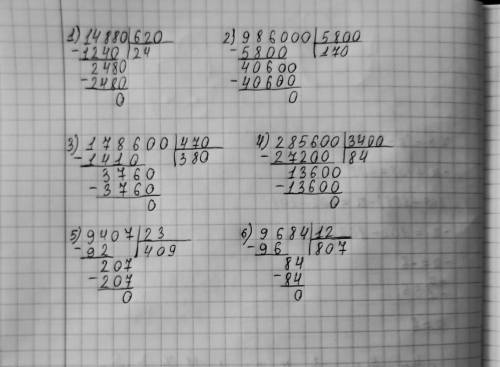 1) 14880 | 620
- 1240 | 24
2480
- 2480
0
2) 986000 | 5800
- 5800 | 170
40600
- 40600
0
3) 178600 | 470
- 1410 | 380
3760
- 3760
0
4) 285600 | 3400
- 27200 | 84
13600
- 13600
0
5) 9407 | 23
- 92 | 409
207
- 207
0
6) 9684 | 12
- 96 | 807
84
- 84
0